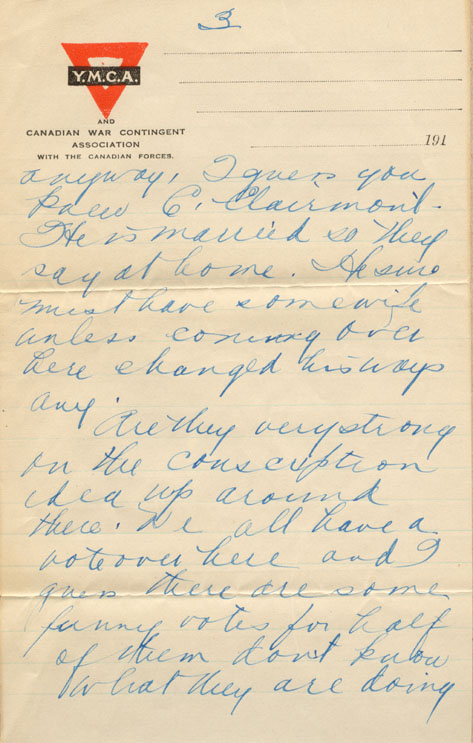 3
Y.M.C.A.
AND
CANADIAN WAR CONTINGENT
ASSOCIATION
WITH THE CANADIAN FORCES.
191
anyway, I guess you
knew C. Clairmont.
He is married so they
say at home. He sure
must have some wife
unless coming over
here changed his ways
any.
Are they very strong
on the conscription
idea up around
there. We all have a
vote over here and I
guess there are some
funny votes for half
of them don't know
what they are doing